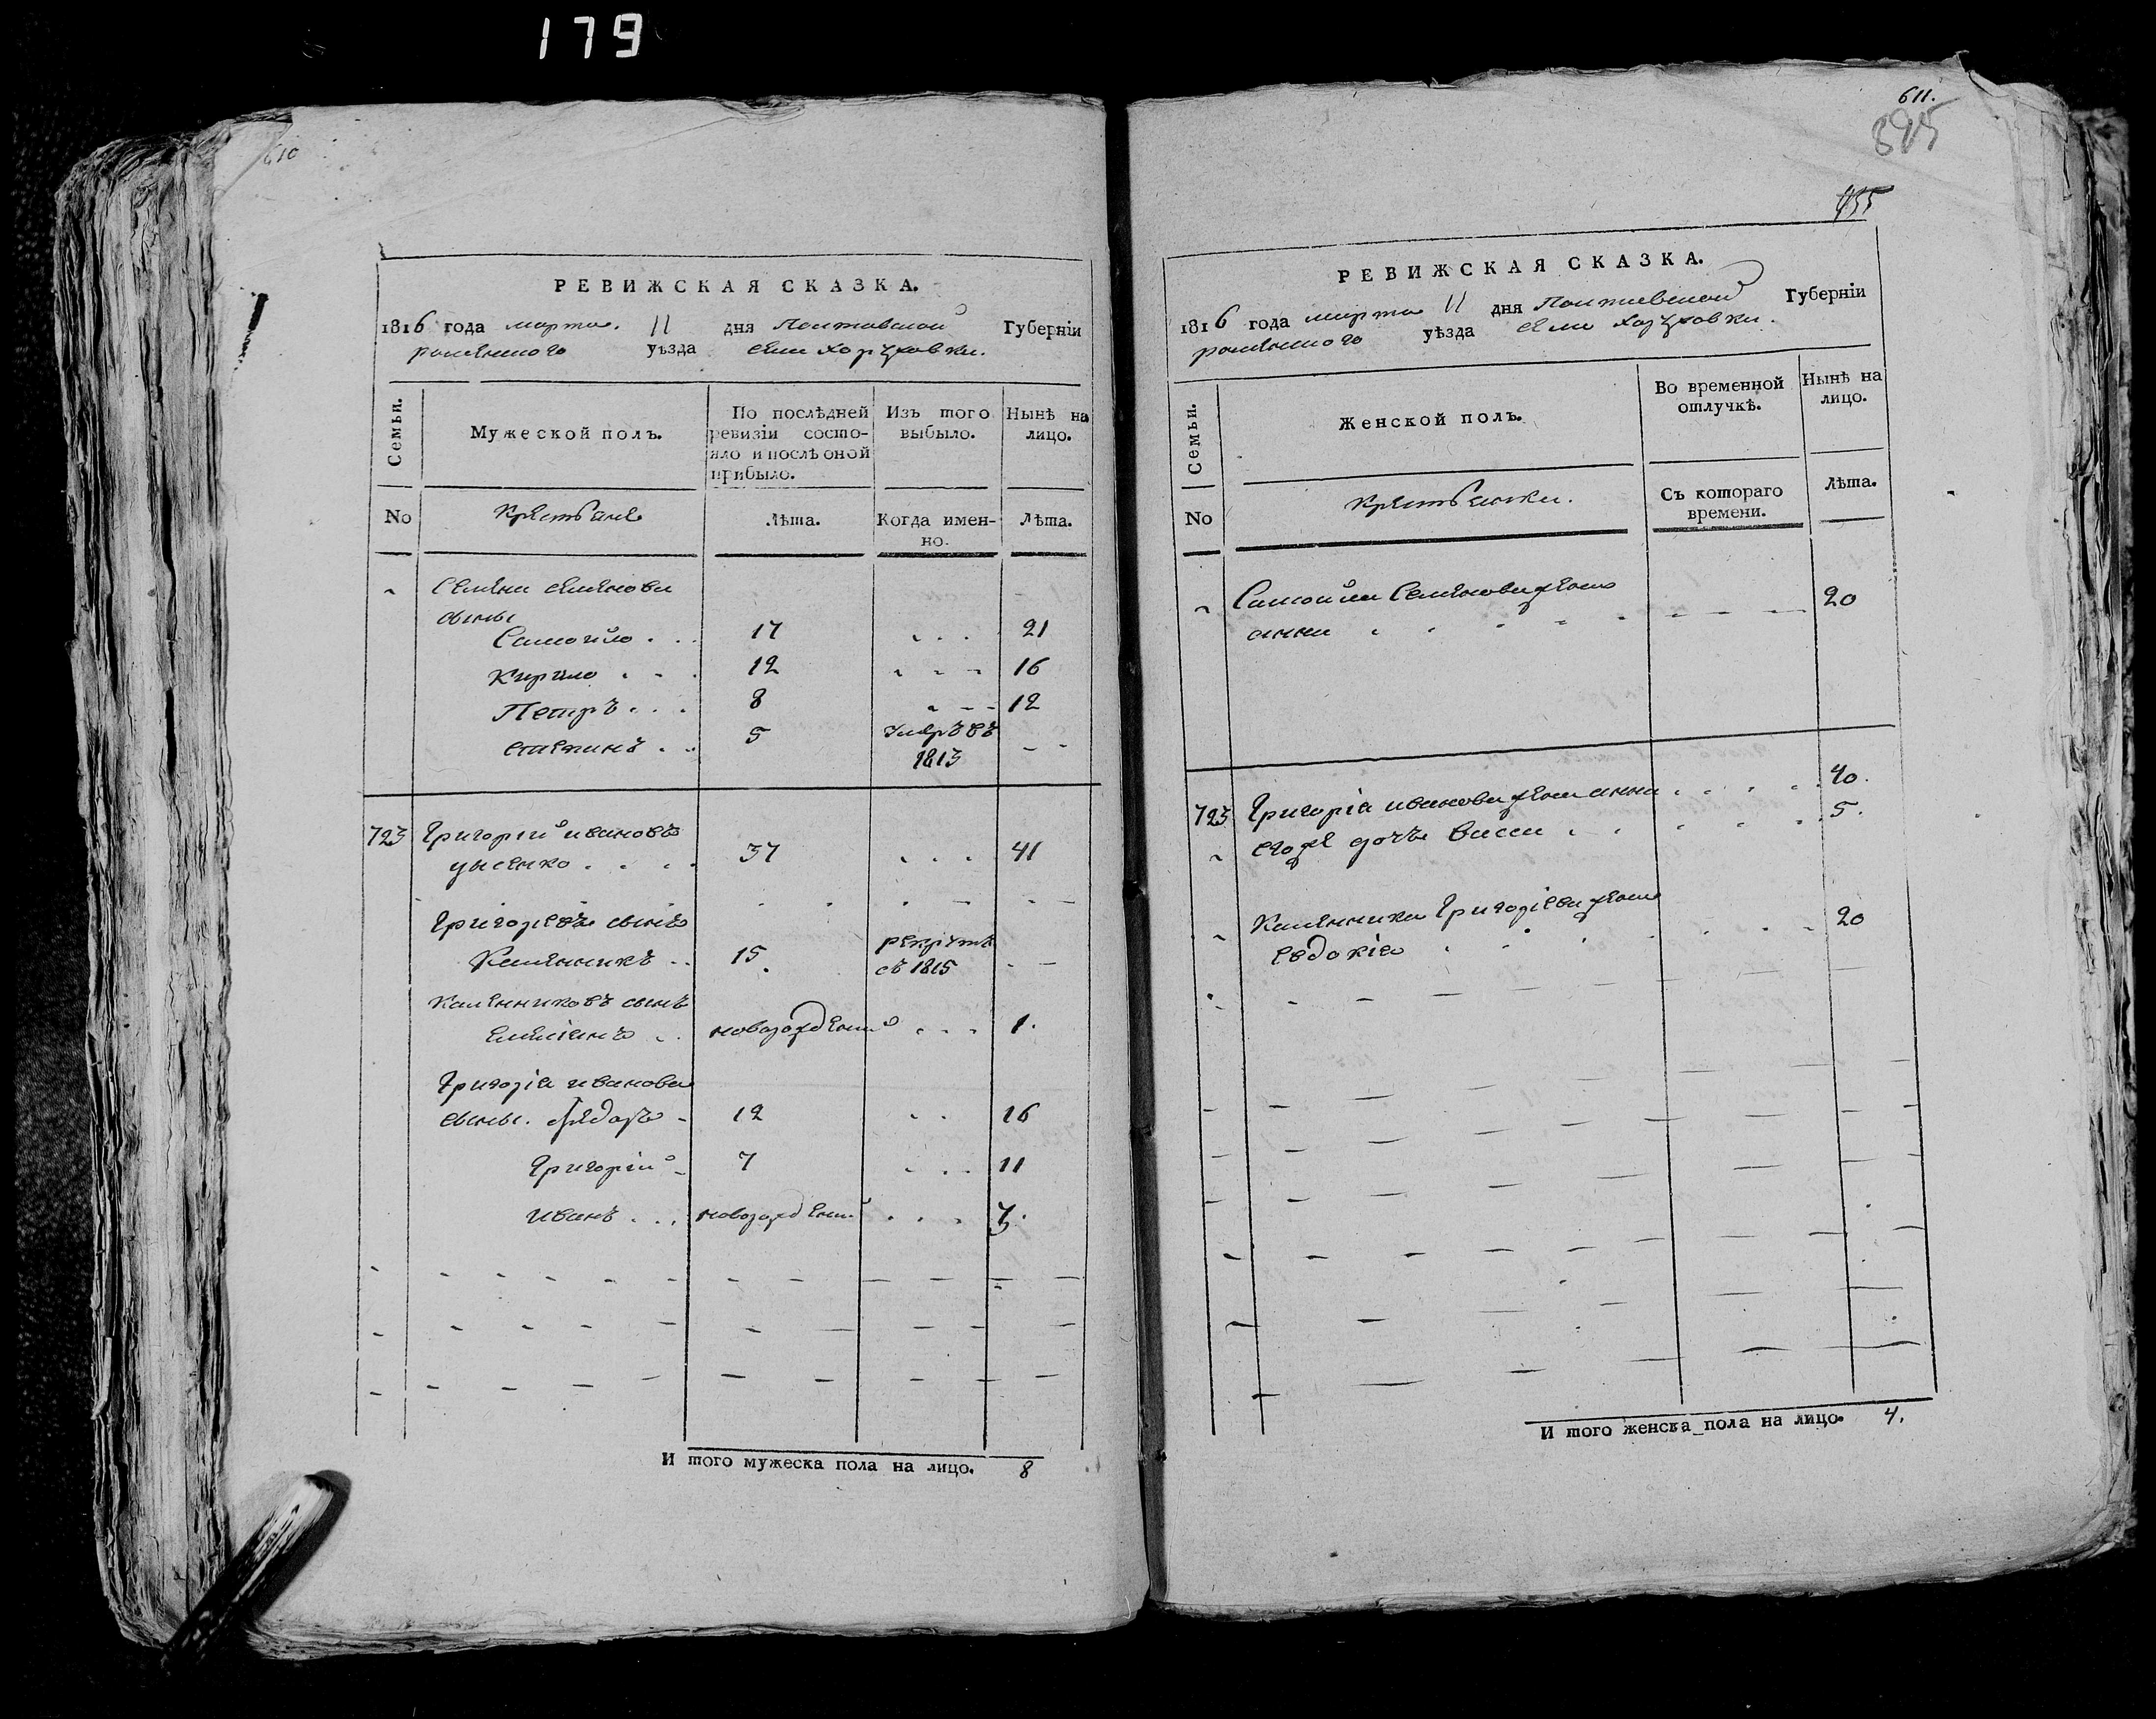 179
610
РЕВИЖСКАЯ СКАЗКА.
1816 года марта 11 дня Полтавской Губерніи
роменского уѣзда села Хоружовки.
Семьи.
Мужеской полъ.
По послѣдней ревизіи состо-
яло и послѣ оной прибыло.
Изъ того выбыло.
Нынѣ на лицо.
No
Крестьяне
Лѣта.
Когда имен-
но.
Лѣта.
Семена семенова
сыны
Самойло . . . 17 . . . 21
Кирило . . . 12 . . . 16
Петръ . . . 8 . . . 12
степанъ . . 5 умре въ 1813 - -
723 Григорий ивановъ
цысенко . . . . 37 . . . 41
Григориевъ сынъ
Калинникъ . . 15. рекрутъ съ 1815 - -
Калинниковъ сынъ
Емелianъ . . новорожденой . . . 1.
Григорія иванова
сыны. Федоръ - 12 . . 16
Григорій - 7 . . . 11
иванъ . . . новорожденой . . . 3.
И того мужеска пола на лицо. 8
611.
455
РЕВИЖСКАЯ СКАЗКА.
1816 года марта 11 дня Полтавской Губерніи
роменского уѣзда села Хоружовки.
Семьи.
Женской полъ.
Во временной отлучкѣ.
Нынѣ на лицо.
No
Крестьянки.
Съ котораго времени.
Лѣта.
Самойла Семенова жена
анна 20
723 Григорія иванова жена анна . . . . . 40.
его же дочь васса . . . . . 5.
Калинника Григоріева жена
евдокія 20
И того женска пола на лицо. 4.